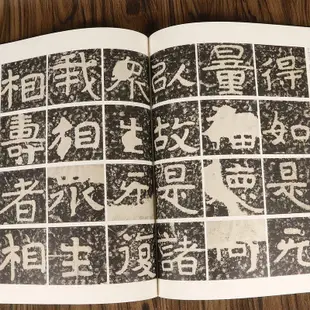 得如是无
量福德何
以故是諸
衆生无復
我相衆生
相壽者相